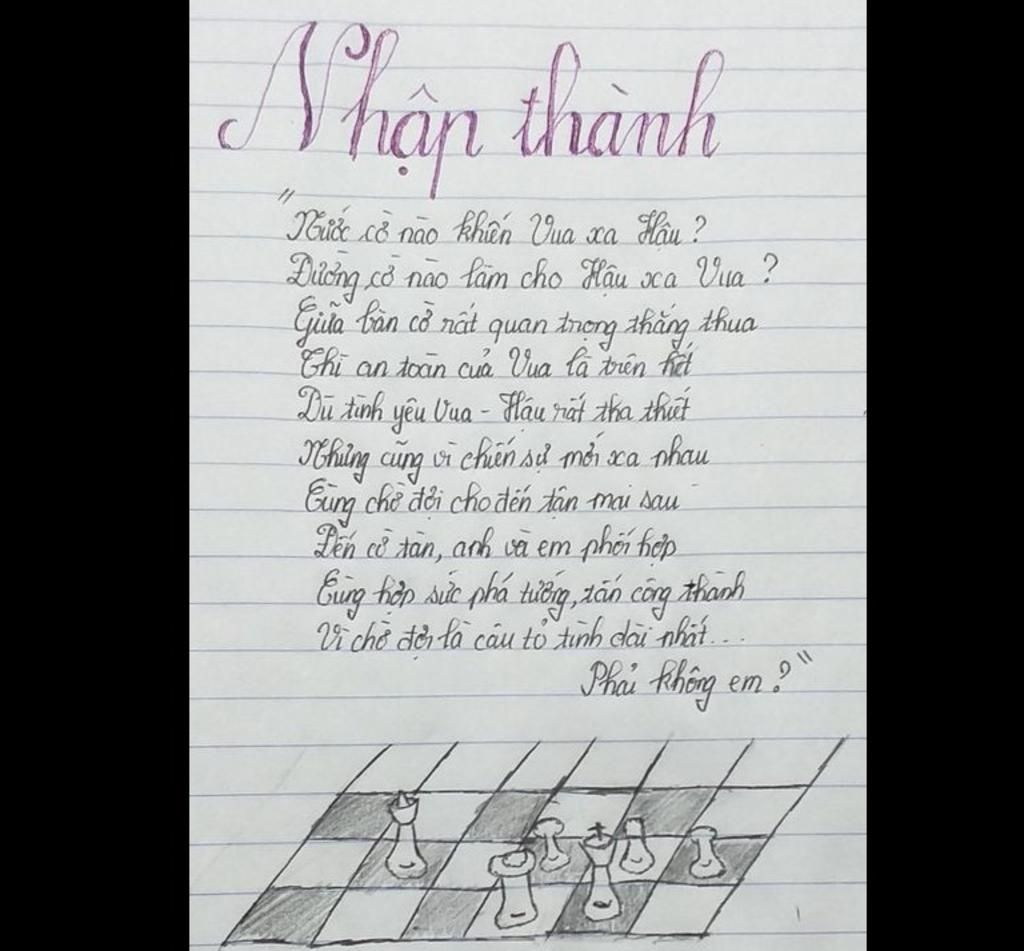 Nhập thành
"Nước cờ nào khiến Vua xa Hậu?
Đường cờ nào làm cho Hậu xa Vua?
Giữa bàn cờ rất quan trọng thắng thua
Thì an toàn của Vua là trên hết
Dù tình yêu Vua - Hậu rất tha thiết
Nhưng cũng vì chiến sự mới xa nhau
Cùng chờ đợi cho đến tận mai sau
Đến cờ tàn, anh và em phối hợp
Cùng hợp sức phá tướng, tấn công thành
Vì chờ đợi là câu tỏ tình dài nhất...
Phải không em?"